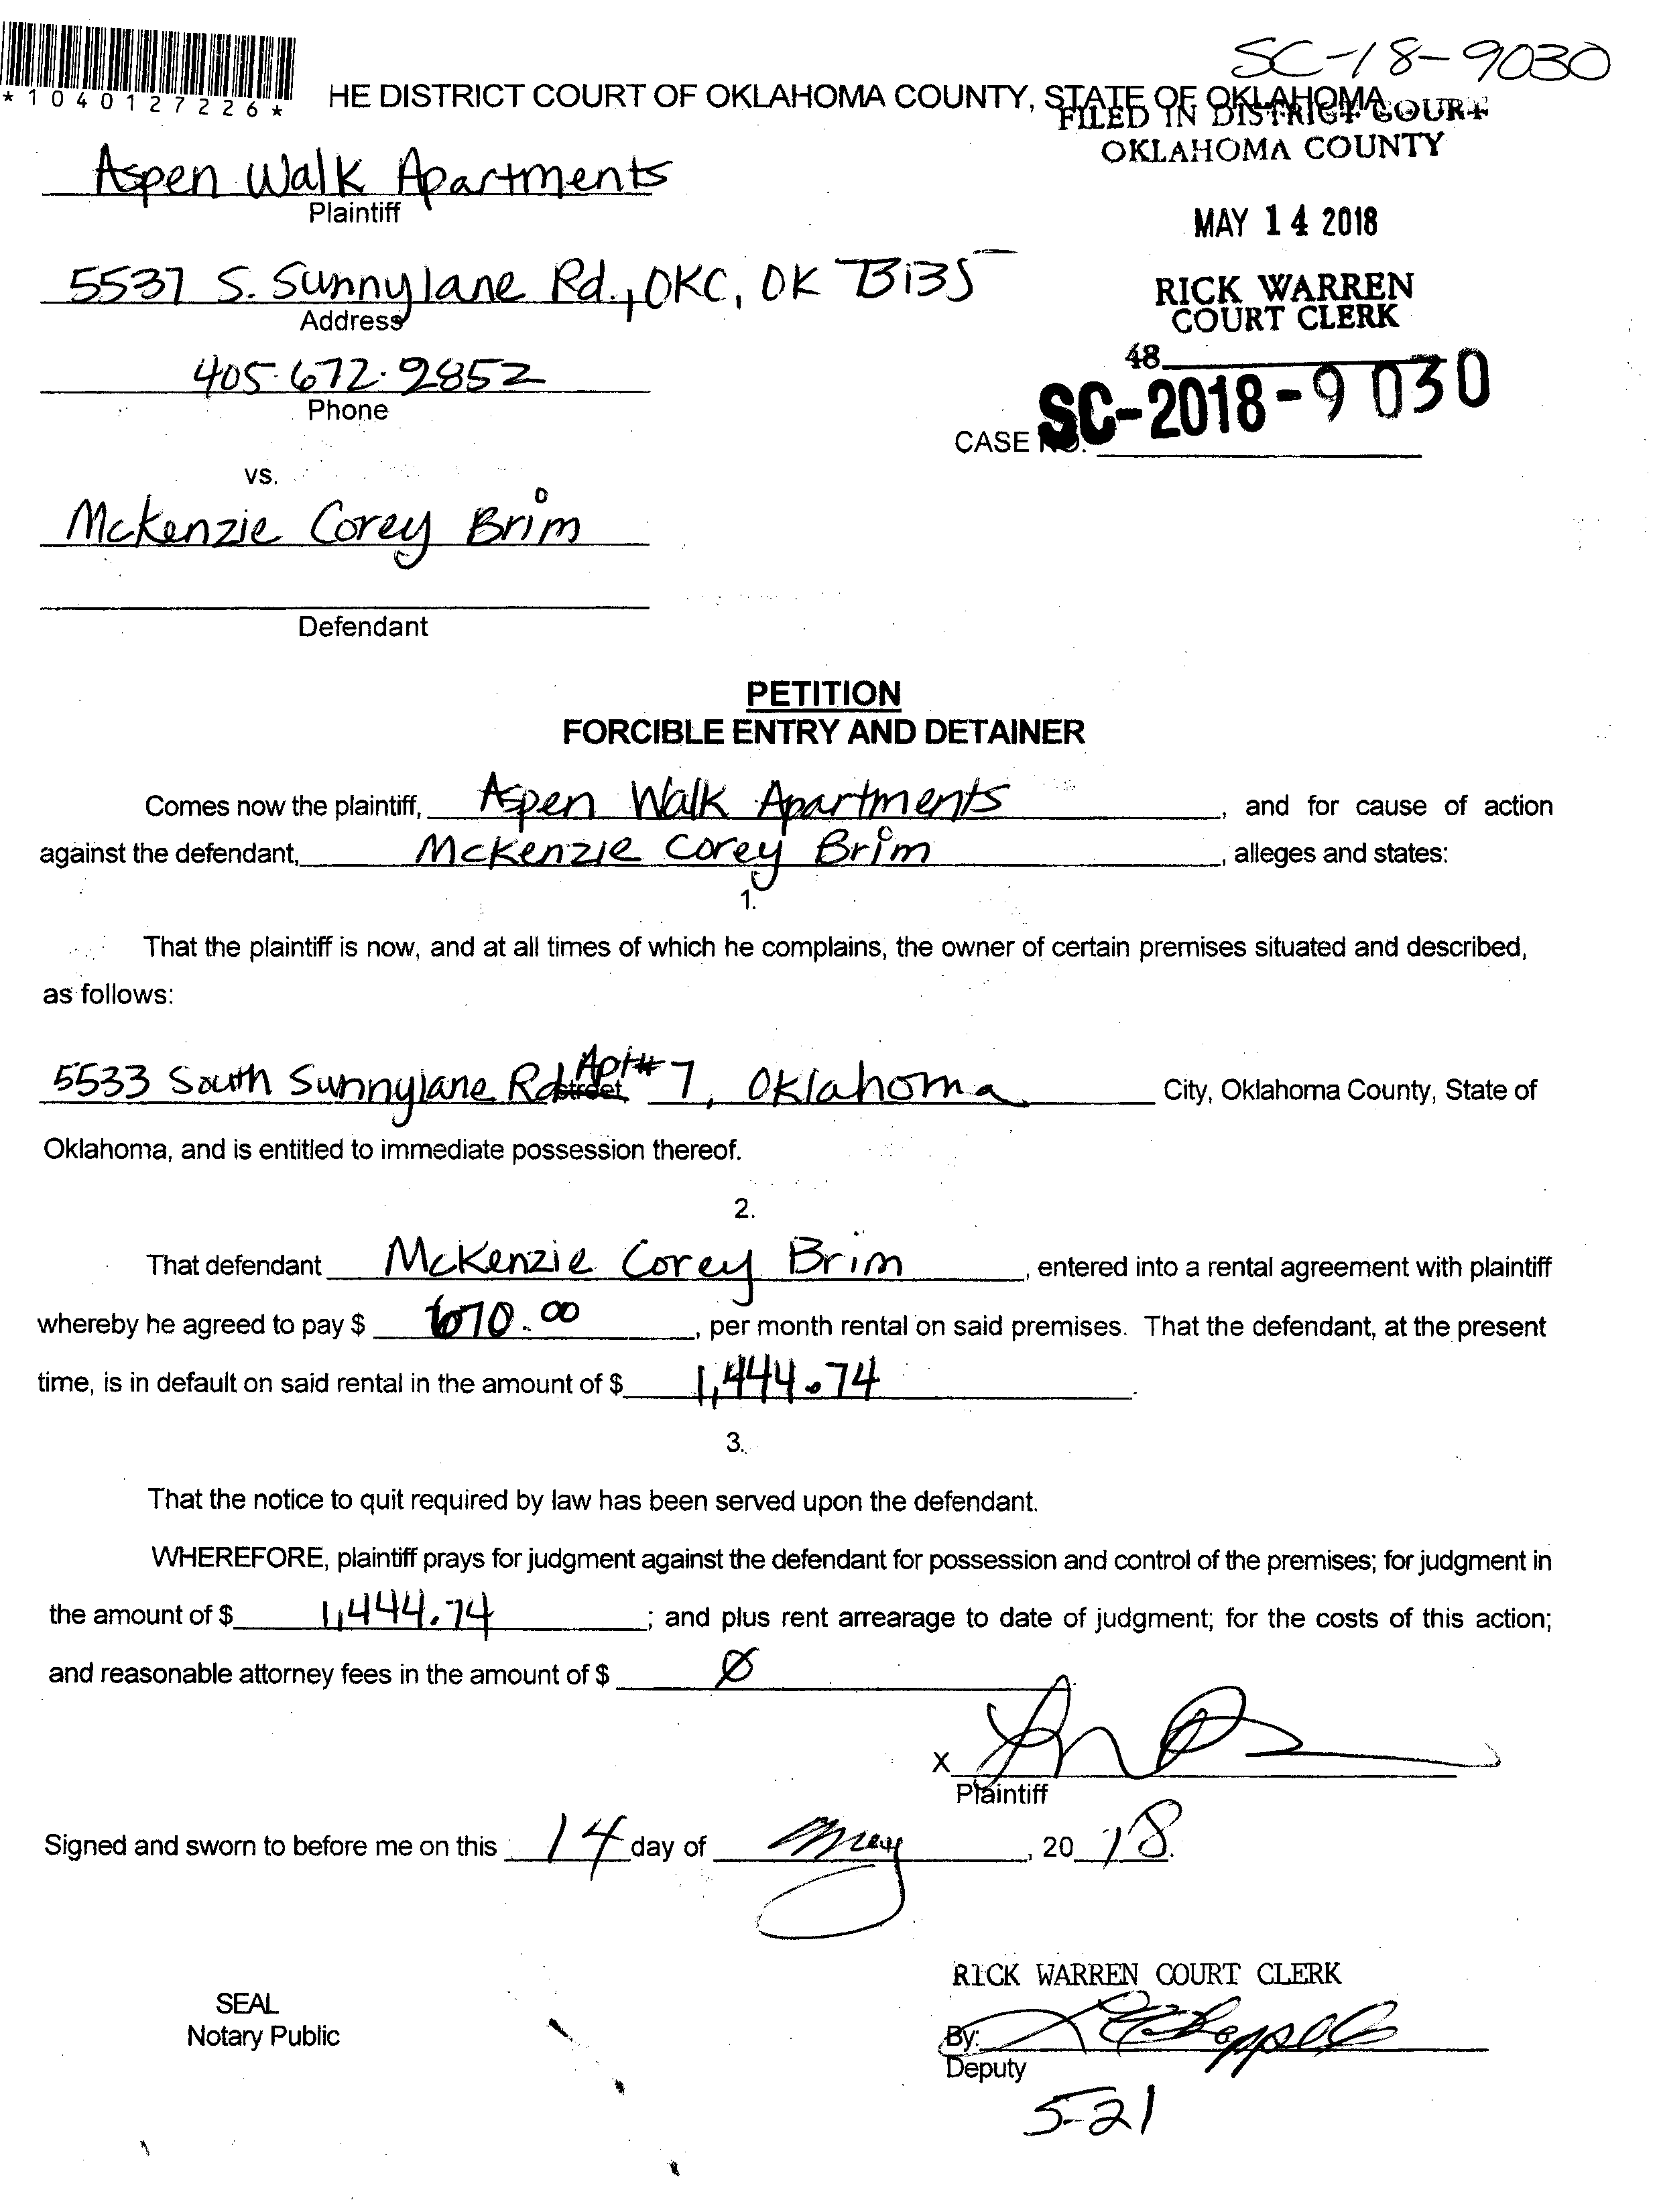 SC-18-9030
*1040127226*
HE DISTRICT COURT OF OKLAHOMA COUNTY, STATE OF OKLAHOMA
FILED IN DISTRICT COURT
OKLAHOMA COUNTY
Aspen Walk Apartments
Plaintiff
MAY 14 2018
5537 S. Sunnylane Rd., OKC, OK 73135
Address
RICK WARREN
COURT CLERK
405-672-9852
Phone
48
CASE NO. SC-2018-9030
vs.
McKenzie Corey Brim
Defendant
PETITION
FORCIBLE ENTRY AND DETAINER
Comes now the plaintiff, Aspen Walk Apartments, and for cause of action
against the defendant, McKenzie Corey Brim, alleges and states:
1.
That the plaintiff is now, and at all times of which he complains, the owner of certain premises situated and described,
as follows:
5533 South Sunnylane Rd street Apt# 7, Oklahoma City, Oklahoma County, State of
Oklahoma, and is entitled to immediate possession thereof.
2.
That defendant McKenzie Corey Brim, entered into a rental agreement with plaintiff
whereby he agreed to pay $ 670.00, per month rental on said premises. That the defendant, at the present
time, is in default on said rental in the amount of $ 1,444.74.
3.
That the notice to quit required by law has been served upon the defendant.
WHEREFORE, plaintiff prays for judgment against the defendant for possession and control of the premises; for judgment in
the amount of $ 1,444.74; and plus rent arrearage to date of judgment; for the costs of this action;
and reasonable attorney fees in the amount of $ Ø
X
Plaintiff
Signed and sworn to before me on this 14 day of May, 20 18.
RICK WARREN COURT CLERK
SEAL
Notary Public
By:
Deputy
5-21